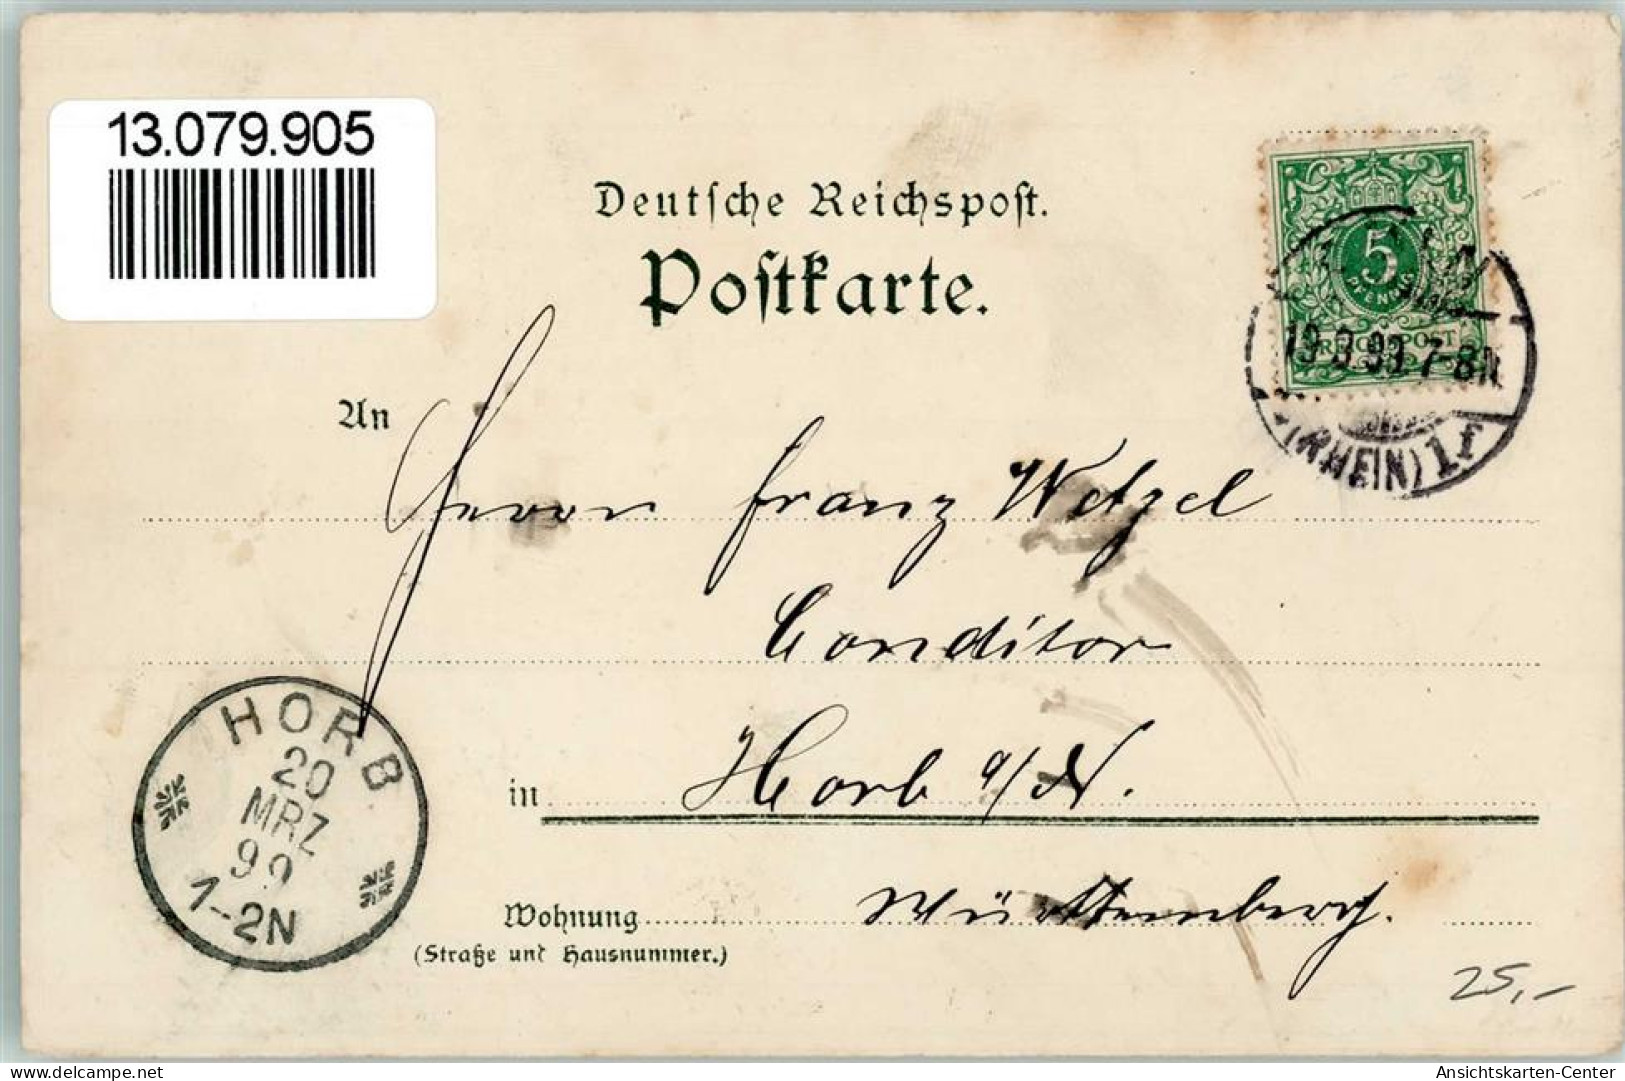 13.079.905
Deutsche Reichspost.
Postkarte.
5
PFENNIG
REICHSPOST
19.3.99. 7-8N
(RHEIN) 1f
An
Herrn Franz Wetzel
Conditor
in Horb a/N.
Wohnung Württemberg.
(Straße und Hausnummer.)
HORB
20
MRZ
99
1-2N
25,-
delcampe.net
Ansichtskarten-Center